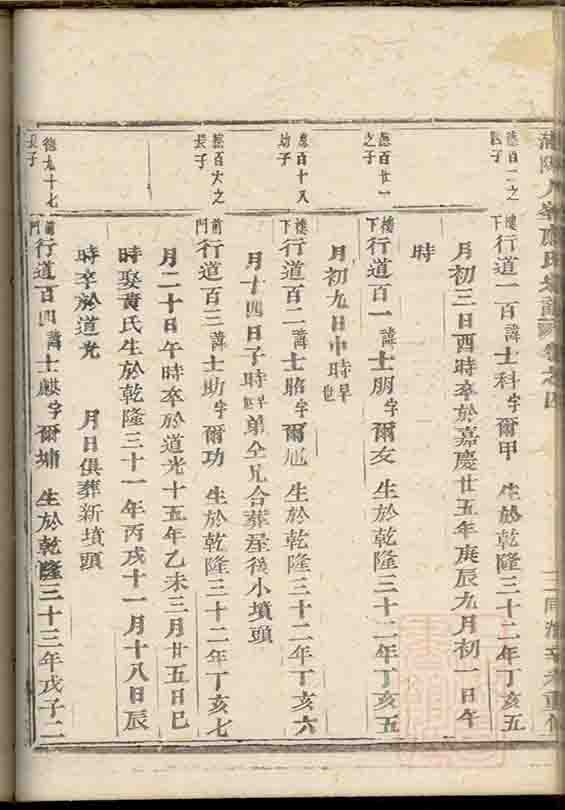 德百二之
四子
樓下行道一百諱士科字爾甲 生於乾隆三十二年丁亥五
月初三日酉時卒於嘉慶廿五年庚辰九月初一日午
時
德百廿一
之子
樓下行道百一諱士朋字爾友 生於乾隆三十二年丁亥五
月初九日申時早世
德百十八
幼子
樓下行道百二諱士賂字爾 生於乾隆三十二年丁亥六
月十四日子時早世弟仝兄合葬屋後小墳頭
德百六之
長子
前門行道百三諱士助字爾功 生於乾隆三十二年丁亥七
月二十日午時卒於道光十五年乙未三月廿五日巳
時娶黃氏生於乾隆三十一年丙戌十一月十八日辰
時卒於道光 月日俱葬新墳頭
德九十七
長子
前門行道百四諱士麒字爾墉 生於乾隆三十三年戊子二